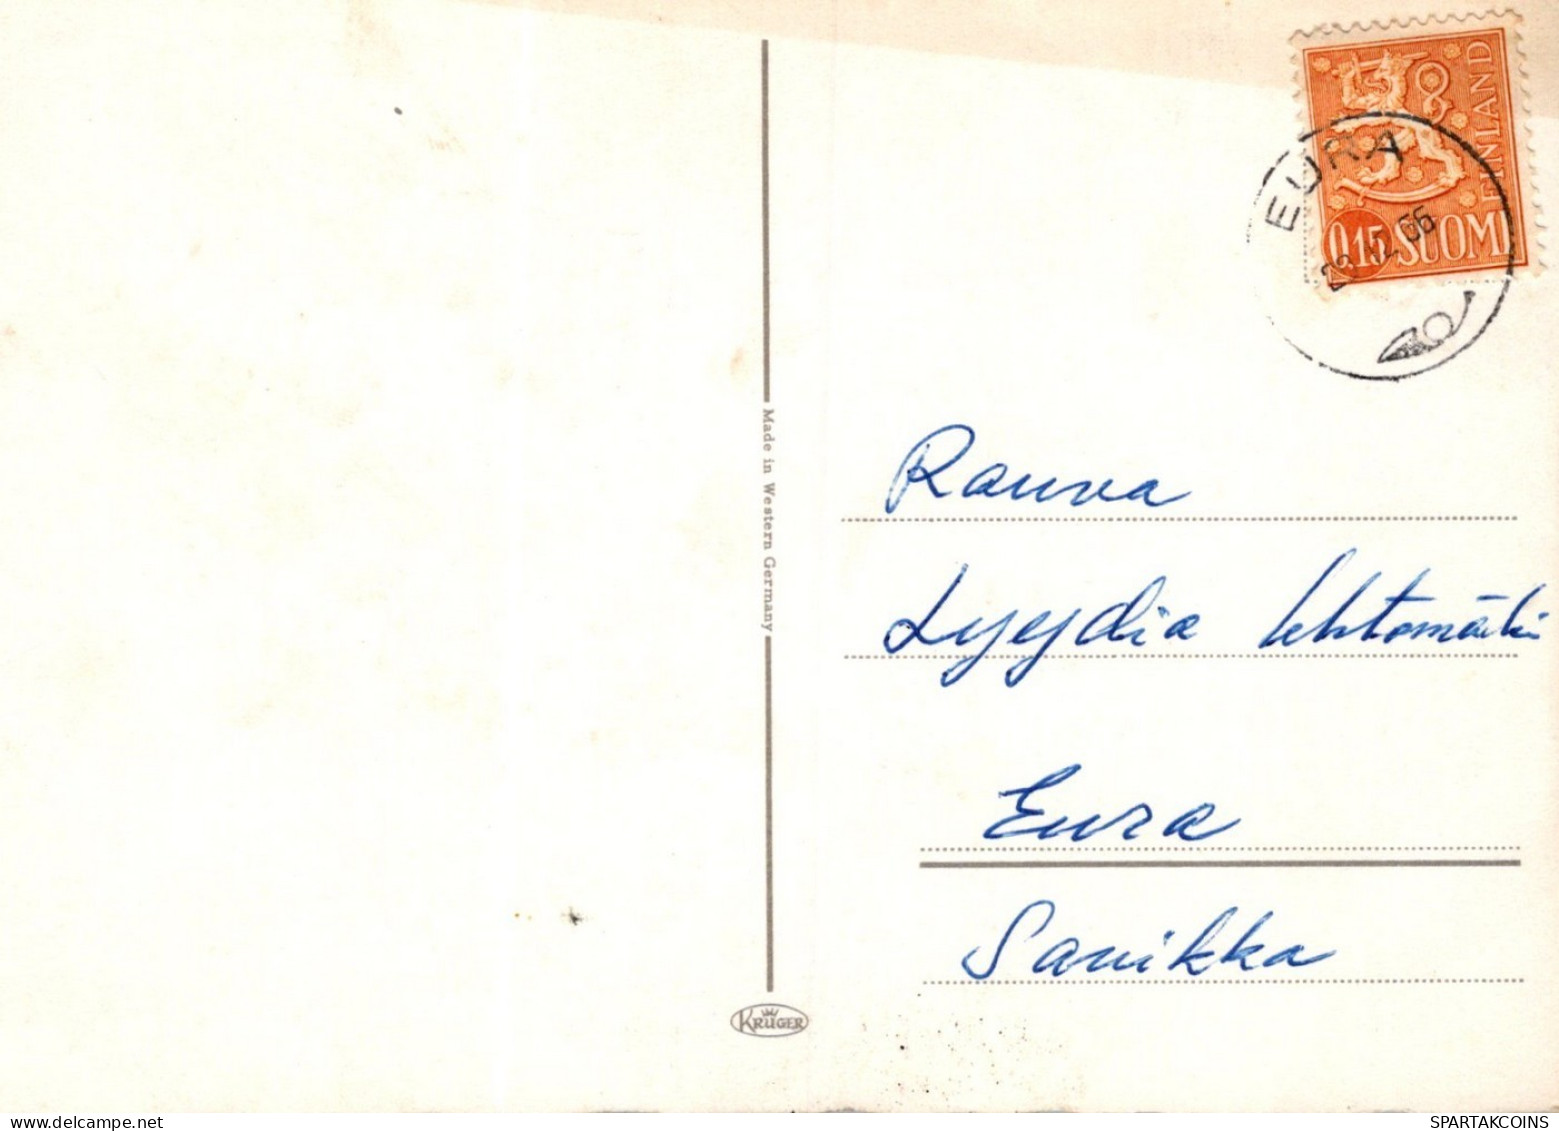 FINLAND
EURA
0,15 SUOMI
23.12.66
Made in Western Germany
Rauva
Lyydia Lehtomäki
Eura
Sanikka
KRÜGER
delcampe.net
SPARTAKCOINS